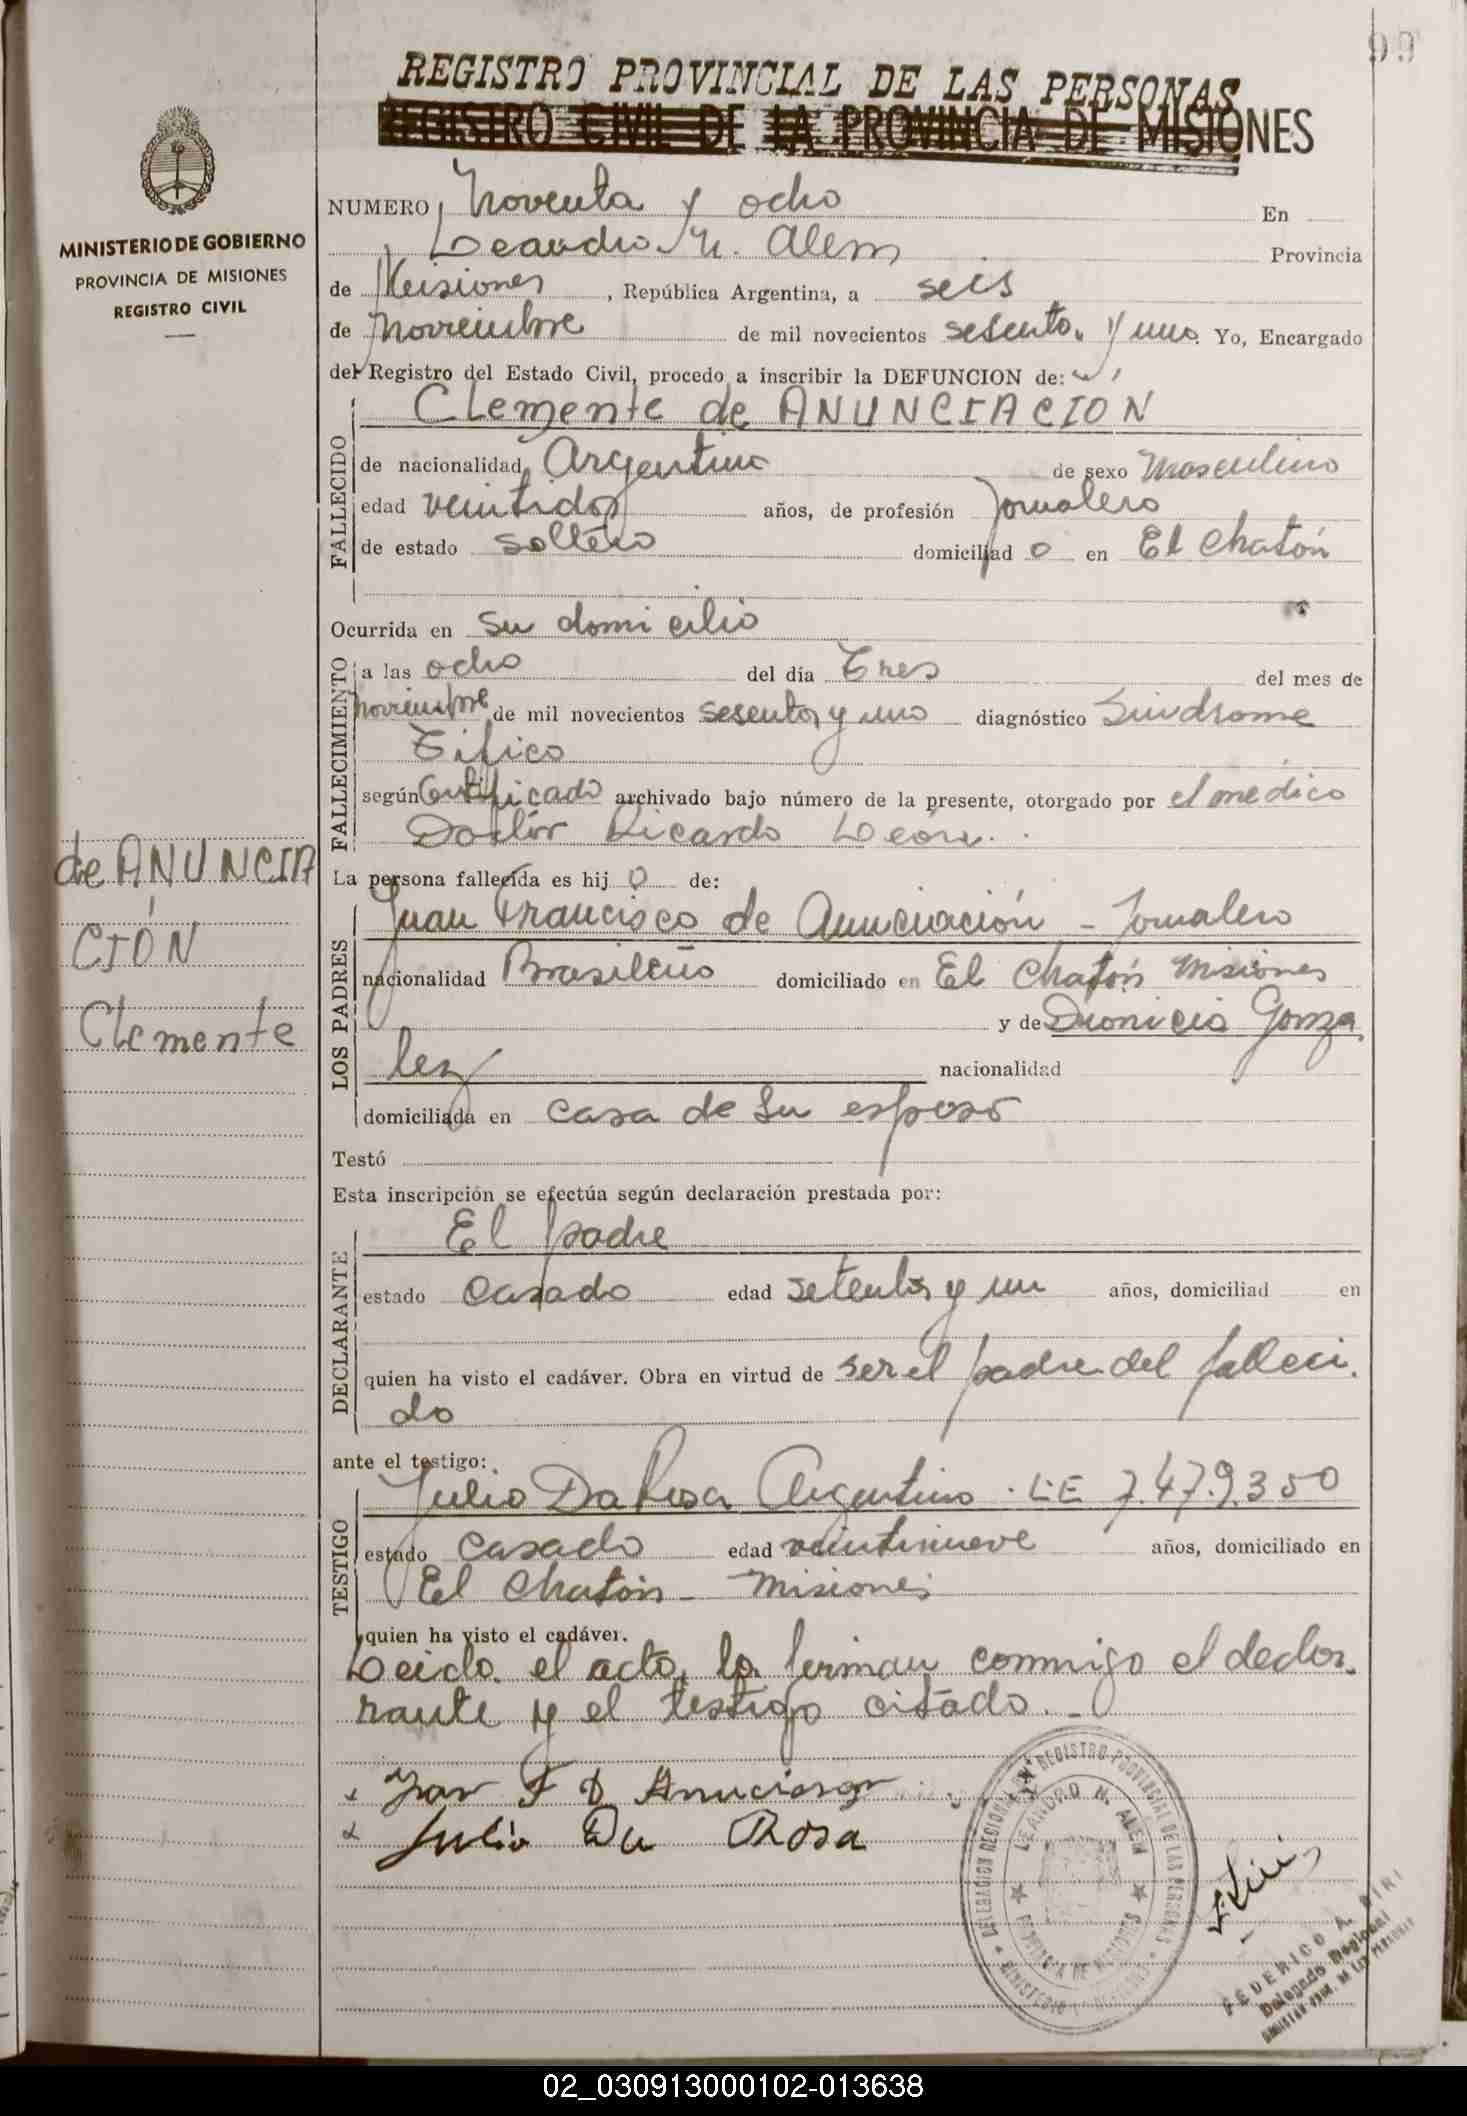 99
REGISTRO PROVINCIAL DE LAS PERSONAS
REGISTRO CIVIL DE LA PROVINCIA DE MISIONES
MINISTERIO DE GOBIERNO
PROVINCIA DE MISIONES
REGISTRO CIVIL
NUMERO Noventa y ocho En
Leandro N. Alem Provincia
de Misiones, República Argentina, a seis
de Noviembre de mil novecientos sesenta y uno. Yo, Encargado
del Registro del Estado Civil, procedo a inscribir la DEFUNCION de:
Clemente de ANUNCIACION
FALLECIDO
de nacionalidad Argentina de sexo Masculino
edad veintidos años, de profesión Jornalero
de estado soltero domiciliad o en El Chatón
Ocurrida en su domicilio
FALLECIMIENTO
a las ocho del día Tres del mes de
Noviembre de mil novecientos sesenta y uno diagnóstico Sindrome
Tifico
según Certificado archivado bajo número de la presente, otorgado por el médico
Doctor Ricardo León.
de ANUNCIA
CIÓN
Clemente
La persona fallecida es hij o de:
LOS PADRES
Juan Francisco de Anunciación - Jornalero
nacionalidad Brasileño domiciliado en El Chatón Misiones
y de Dionicia Gonza
lez nacionalidad
domiciliada en casa de su esposo
Testó
Esta inscripción se efectúa según declaración prestada por:
DECLARANTE
El padre
estado casado edad setenta y un años, domiciliad en
quien ha visto el cadáver. Obra en virtud de ser el padre del falleci
do
ante el testigo:
TESTIGO
Julio Da Rosa Argentino. L.E 7.479.350
estado casado edad veintinueve años, domiciliado en
El Chatón - Misiones
quien ha visto el cadáver.
Leida el acta, la firman conmigo el decla
rante y el testigo citado.-
Juan F D Anuciason
Julio Da Rosa
DELEGACION REGIONAL REGISTRO PROVINCIAL DE LAS PERSONAS
LEANDRO N. ALEM
PROVINCIA DE MISIONES
MINISTERIO DE GOBIERNO
FEDERICO A.
Delegado Regional
02_030913000102-013638